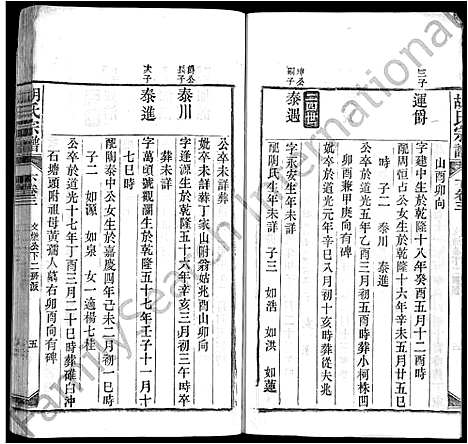 胡氏宗譜
卷三
山酉卯向
三子
運爵
字建中生於乾隆十八年癸酉五月十二酉時
配周恒占公女生於乾隆十六年辛未二月廿五巳時
子二 泰川 泰進
公卒於嘉慶
初五酉時葬小柯株四
卯酉兼甲庚向有碑
妣卒於道光元年辛巳八月初十亥時葬從夫兆
二四世
坤公
嗣子
泰遇
字永安生年未詳
配閔氏生年未詳 子三 如浩 如洪 如蓮
公卒未詳葬
妣卒未詳葬丁家山附翁姑兆酉山卯向
爵公
長子
泰川
字逢源生於乾隆五十六年辛亥三月初三午時卒
葬未詳
次子
泰進
字萬頃號觀瀾生於乾隆五十七年壬子十一月十
七巳時
配陶泰中公女生於嘉慶四年己未二月初一巳時
子二 如源 如泉 女一適楊七桂
公卒於道光十七年丁酉三月二十巳時葬碓白沖
石塘頭附祖母黃孺人墓右卯酉向有碑
胡氏宗譜
卷三
文學公下二房派
五
FamilySearch International